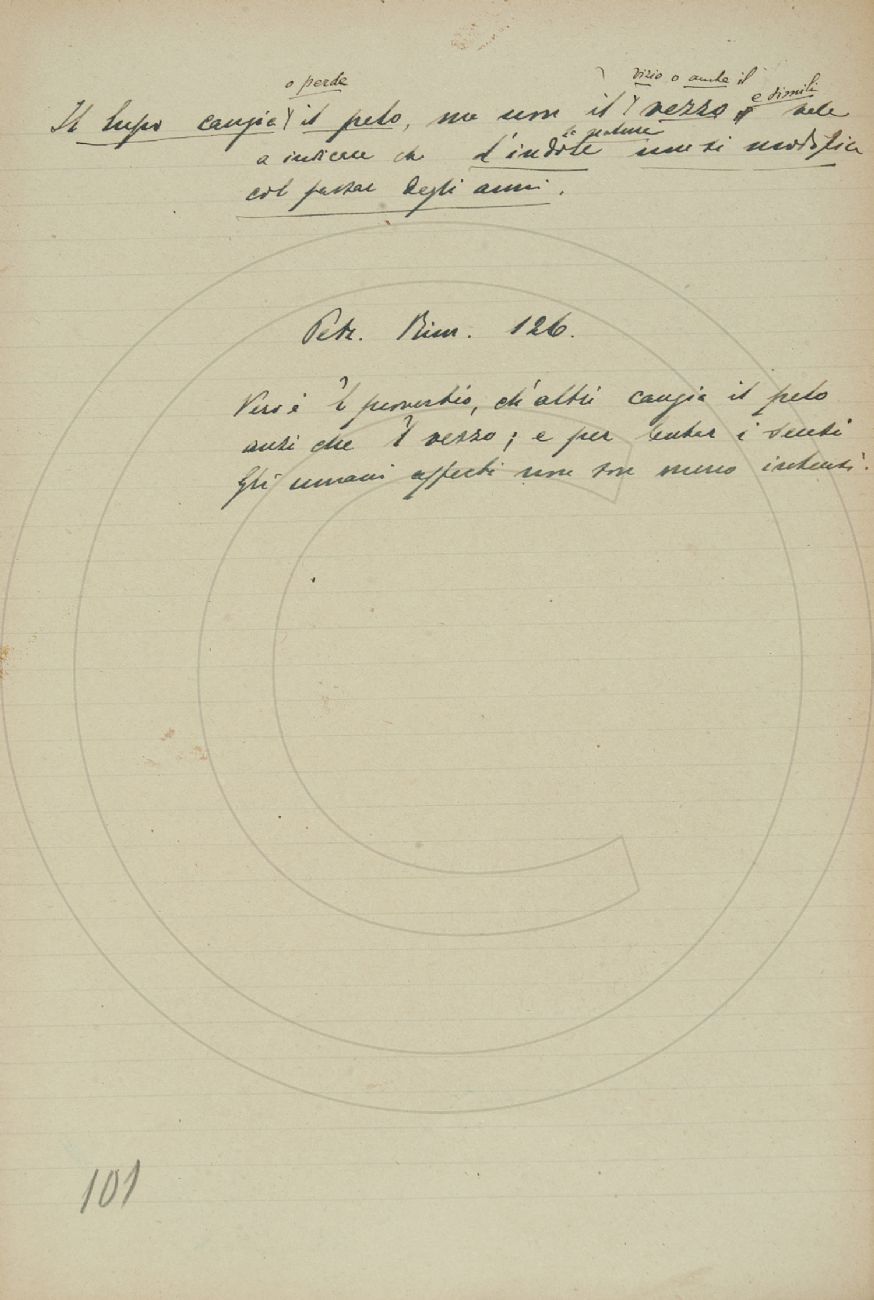 o perde vizio o anche il
Il lupo cangia il pelo, ma non il vezzo e simili vale
la natura
a indicare che l'indole non si modifica
col passar degli anni.
Petr. Rim. 126.
Vero è 'l proverbio, ch'altri cangia il pelo
anzi che 'l vezzo; e per lentar i sensi
Gli umani affetti non son meno intensi.
101